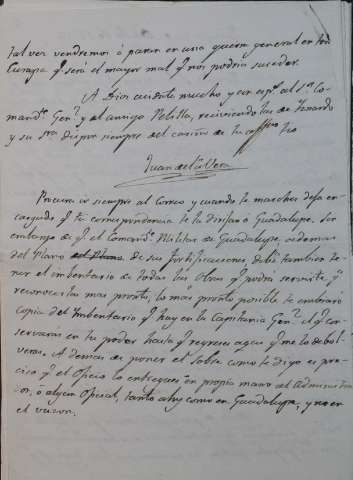 tal vez vendremos á parar en una guerra general en toda
Europa q.e será el mayor mal q.e nos podria suceder.
A Dios cuidate mucho y en esp.l al S.or Co-
mand.te Gen.l y al amigo Velilla, recibiendo las de Fernando
y su S.ra dispon siempre del cariño de tu aff.mo tio
Juan de la Vera
Procura ir siempre al Correo y cuando te marches deja en-
cargado q.e tu correspondencia te la dirijan á Guadalupe. Sin
embargo de q.e el Comand.te Militar de Guadalupe, ademas
del Plano de sus fortificaciones, debe tambien te-
ner el imbentario de todas las obras q.e podra servirte p.a
reconocerlas mas pronto, lo mas pronto posible te embiaré
copia del Imbentario q.e hay en la Capitania Gen.l q.e con-
servarás en tu poder hasta q.e regreses aqui q.e me lo debol-
veras. A demas de poner el sobre como te digo es pre-
ciso q.e el Oficio lo entregues en propia mano del Administra-
dor, ó algun Oficial, tanto ahy como en Guadalupe, y no en
el buzon.